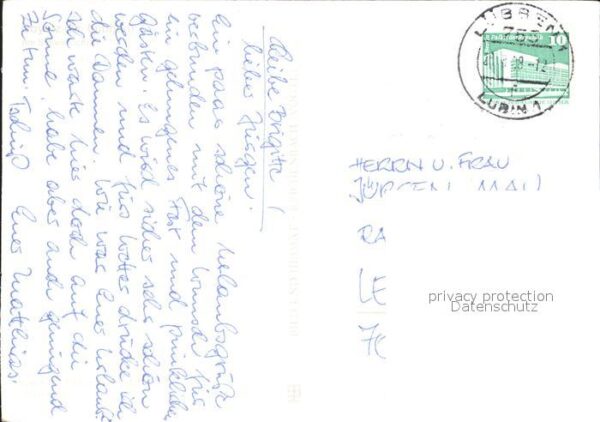 Liebe Brigitte!
lieber Jürgen!
Ein paar schöne Urlaubsgrüße
verbunden mit dem Wunsch für
ein gelungenes Fest und pünktliche
Gästen. Es wird sicher sehr schön
werden und fürs Wetter drücke ich
die Daumen. Wie war Euer Urlaub?
Ich warte hier doch auf die
Sonne, habe aber auch genügend
zu tun. Tschüß Euer Matthias.
LÜBBEN 1
LUBIN 1
10
HERRN U. FRAU
JÜRGEN MAU
RA
LE
70
privacy protection
Datenschutz